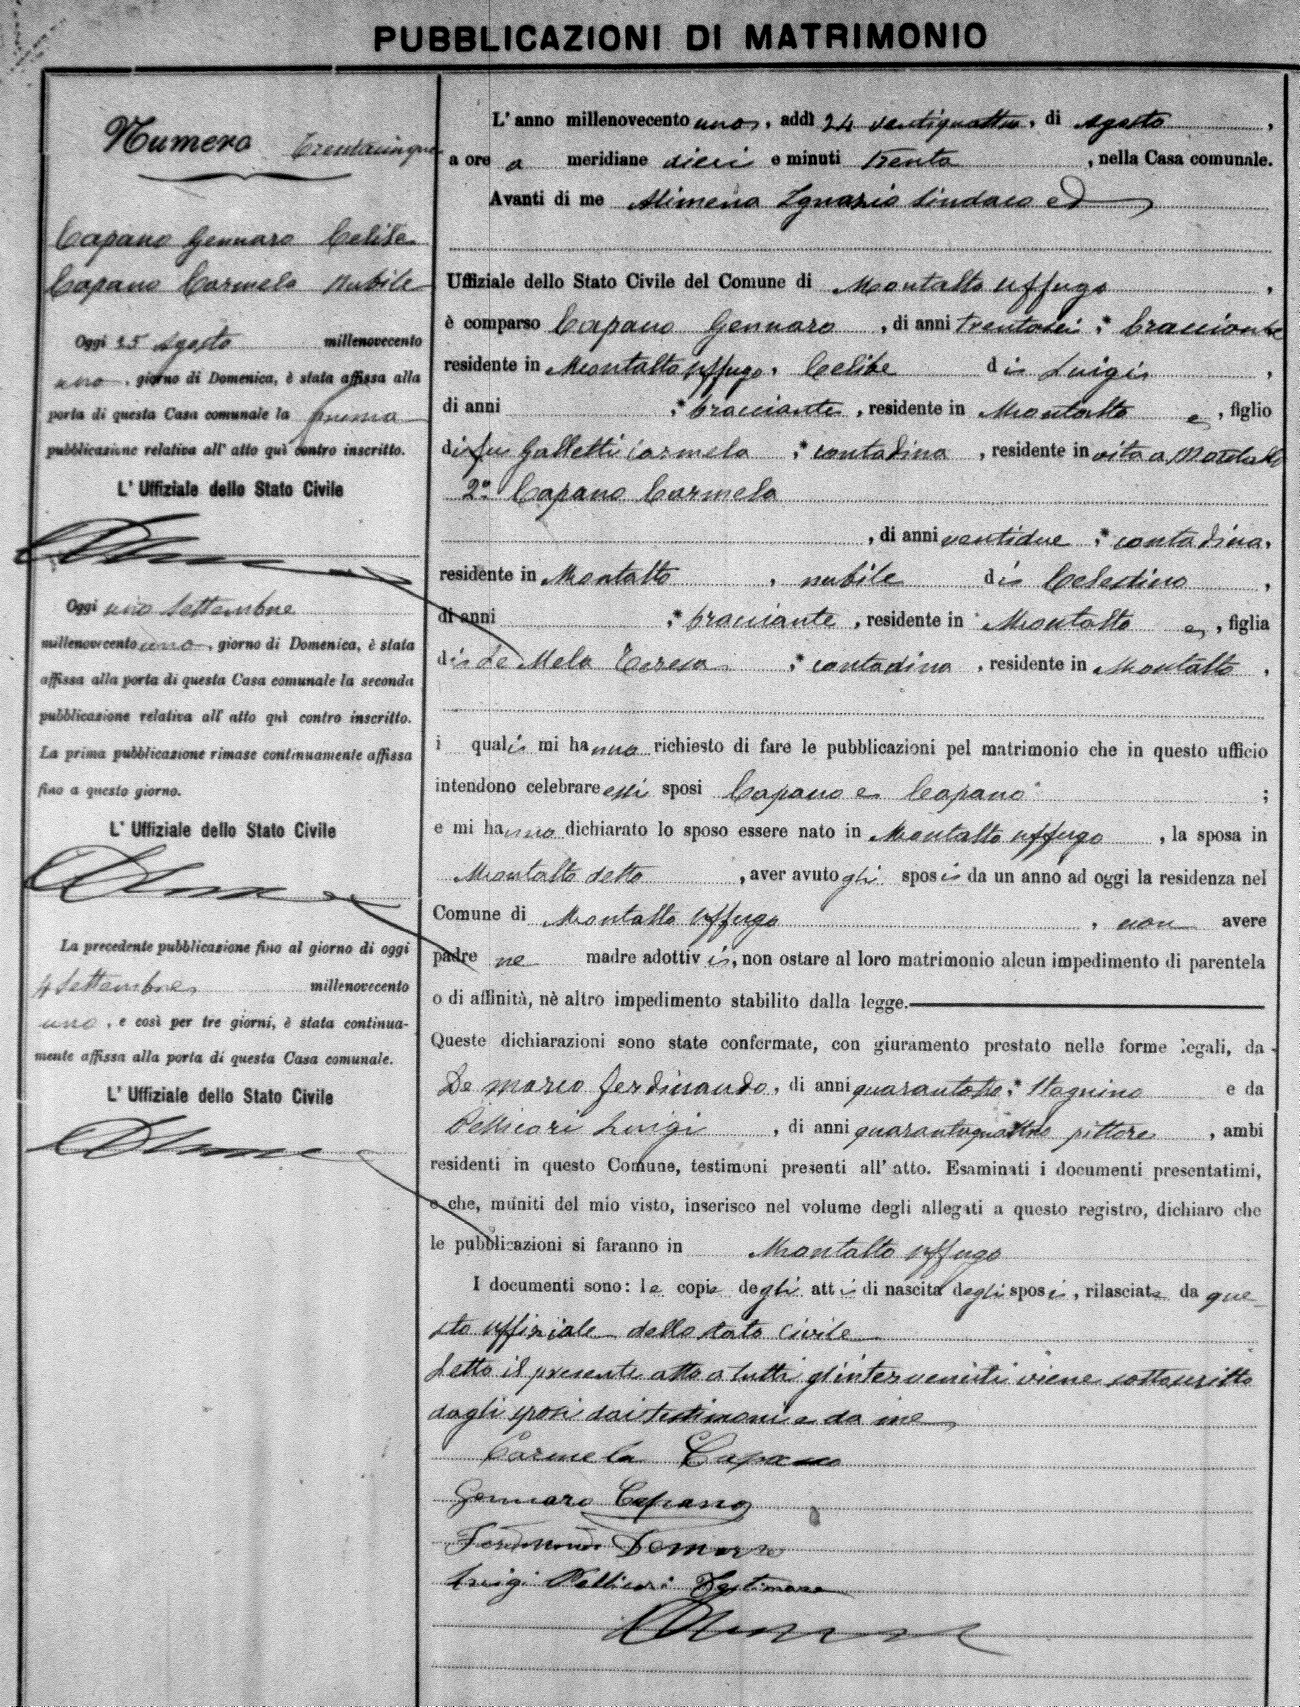 PUBBLICAZIONI DI MATRIMONIO
Numero Trentacinque
Capano Gennaro Celibe
Capano Carmela nubile
Oggi 25 Agosto millenovecento
uno, giorno di Domenica, è stata affissa alla
porta di questa Casa comunale la prima
pubblicazione relativa all' atto quì contro inscritto.
L' Uffiziale dello Stato Civile
Oggi uno Settembre
millenovecento uno, giorno di Domenica, è stata
affissa alla porta di questa Casa comunale la seconda
pubblicazione relativa all' atto quì contro inscritto.
La prima pubblicazione rimase continuamente affissa
fino a questo giorno.
L' Uffiziale dello Stato Civile
La precedente pubblicazione fino al giorno di oggi
4 Settembre millenovecento
uno, e così per tre giorni, è stata continua-
mente affissa alla porta di questa Casa comunale.
L' Uffiziale dello Stato Civile
L' anno millenovecento uno, addì 24 ventiquattro, di Agosto,
a ore a meridiane dieci e minuti trenta, nella Casa comunale.
Avanti di me Alimena Ignazio Sindaco ed
Uffiziale dello Stato Civile del Comune di Montalto Uffugo,
è comparso Capano Gennaro, di anni trentasei, * bracciante
residente in Montalto Uffugo, Celibe di Luigi,
di anni , * bracciante, residente in Montalto e, figlio
di fu Galletti Carmela , * contadina, residente in vita a Montalto
2° Capano Carmela
, di anni ventidue, * contadina,
residente in Montalto, nubile di Celestino,
di anni , * bracciante, residente in Montalto e, figlia
di De Mela Teresa , * contadina, residente in Montalto.
i quali mi hanno richiesto di fare le pubblicazioni pel matrimonio che in questo ufficio
intendono celebrare essi sposi Capano e Capano ;
e mi hanno dichiarato lo sposo essere nato in Montalto Uffugo, la sposa in
Montalto detto, aver avuto gli sposi da un anno ad oggi la residenza nel
Comune di Montalto Uffugo, non avere
padre ne madre adottivi, non ostare al loro matrimonio alcun impedimento di parentela
o di affinità, nè altro impedimento stabilito dalla legge.
Queste dichiarazioni sono state confermate, con giuramento prestato nelle forme legali, da
De Marco Ferdinando, di anni quarantotto, * Stagnino e da
Pellicori Luigi, di anni quarantaquattro pittore, ambi
residenti in questo Comune, testimoni presenti all' atto. Esaminati i documenti presentatimi,
e che, muniti del mio visto, inserisco nel volume degli allegati a questo registro, dichiaro che
le pubblicazioni si faranno in Montalto Uffugo
I documenti sono: le copie degli atti di nascita degli sposi, rilasciate da que-
sto uffiziale dello stato civile
Letto il presente atto a tutti gl'intervenuti viene sottoscritto
dagli sposi dai testimoni e da me
Carmela Capano
Gennaro Capano
Ferdinando Demarco
Luigi Pellicori Testimone